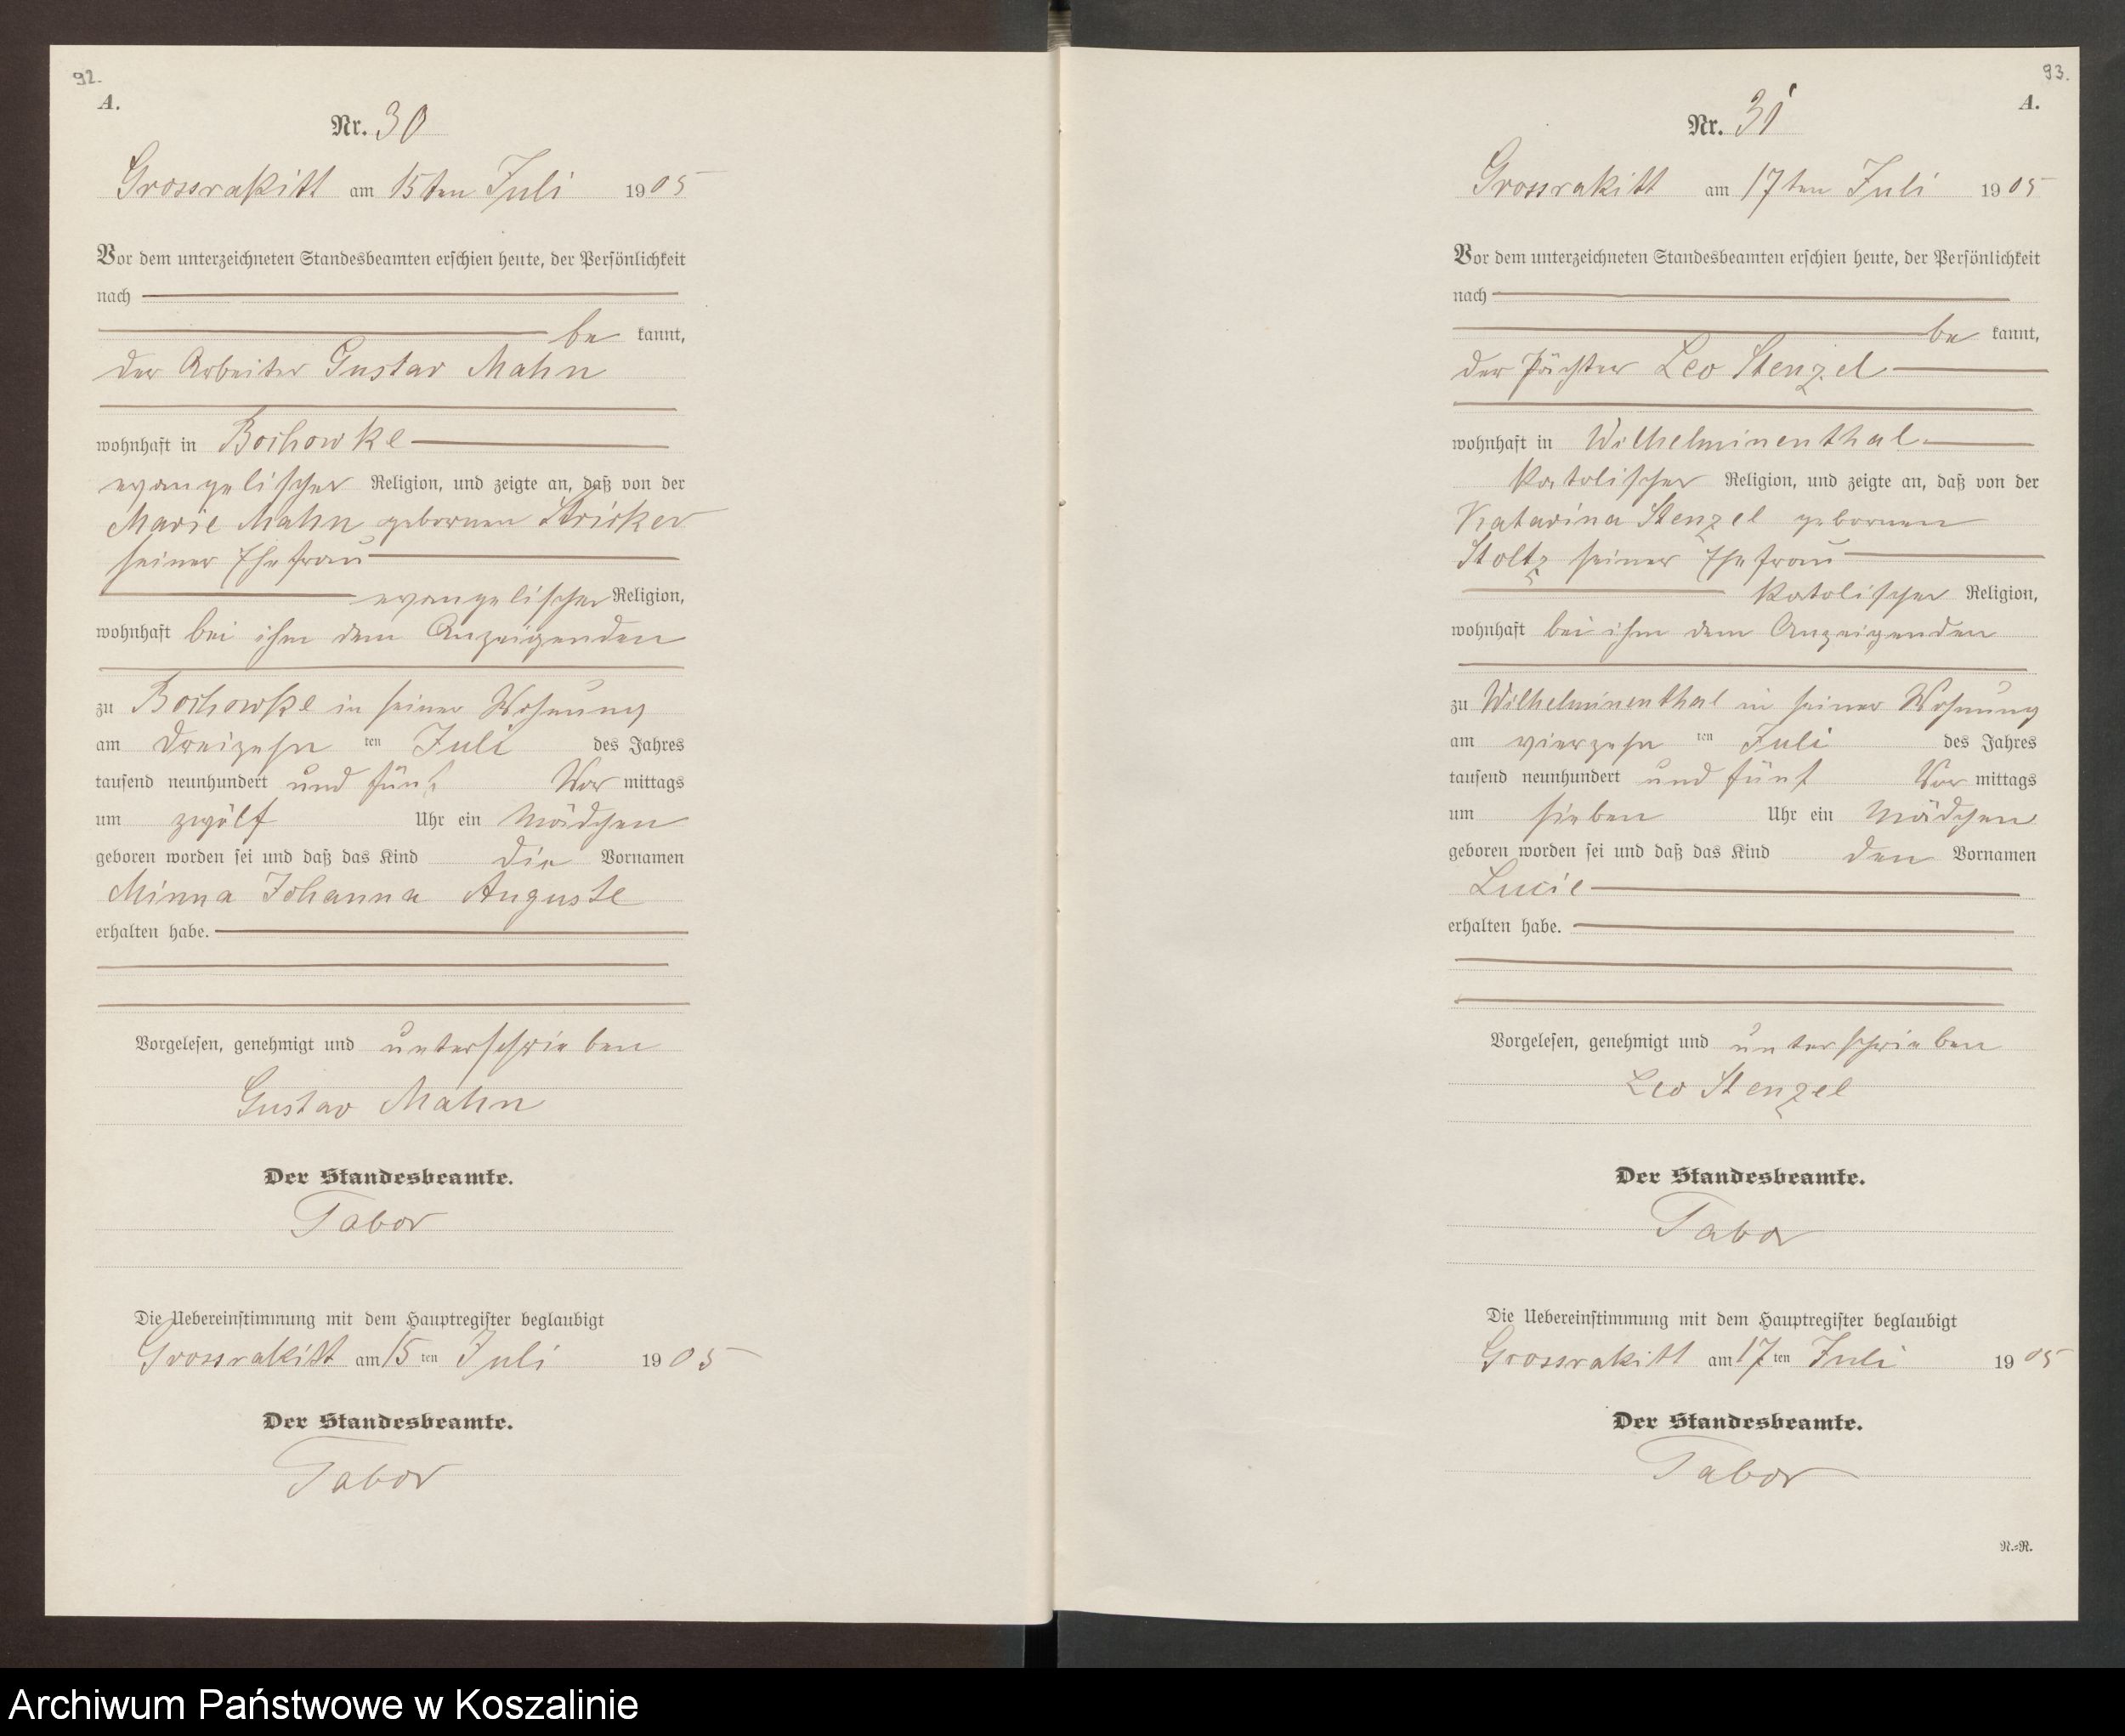 92.
A.
Nr. 30
Grossrakitt am 15ten Juli 1905
Vor dem unterzeichneten Standesbeamten erschien heute, der Persönlichkeit
nach
be kannt,
der Arbeiter Gustav Mahn
wohnhaft in Bochowke
evangelischer Religion, und zeigte an, daß von der
Marie Mahn gebornen Stricker
seiner Ehefrau
evangelischer Religion,
wohnhaft bei ihm dem Anzeigenden
zu Bochowke in seiner Wohnung
am dreizehn ten Juli des Jahres
tausend neunhundert und fünf Vor mittags
um zwölf Uhr ein Mädchen
geboren worden sei und daß das Kind die Vornamen
Minna Johanna Auguste
erhalten habe.
Vorgelesen, genehmigt und unterschrieben
Gustav Mahn
Der Standesbeamte.
Tabor
Die Uebereinstimmung mit dem Hauptregister beglaubigt
Grossrakitt am 15 ten Juli 1905
Der Standesbeamte.
Tabor
93.
A.
Nr. 31
Grossrakitt am 17ten Juli 1905
Vor dem unterzeichneten Standesbeamten erschien heute, der Persönlichkeit
nach
be kannt,
der Pächter Leo Stenzel
wohnhaft in Wilhelminenthal
katolischer Religion, und zeigte an, daß von der
Katarina Stenzel gebornen
Stoltz seiner Ehefrau
katolischer Religion,
wohnhaft bei ihm dem Anzeigenden
zu Wilhelminenthal in seiner Wohnung
am vierzehn ten Juli des Jahres
tausend neunhundert und fünf Vor mittags
um sieben Uhr ein Mädchen
geboren worden sei und daß das Kind den Vornamen
Lucie
erhalten habe.
Vorgelesen, genehmigt und unterschrieben
Leo Stenzel
Der Standesbeamte.
Tabor
Die Uebereinstimmung mit dem Hauptregister beglaubigt
Grossrakitt am 17 ten Juli 1905
Der Standesbeamte.
Tabor
N.=R.
Archiwum Państwowe w Koszalinie